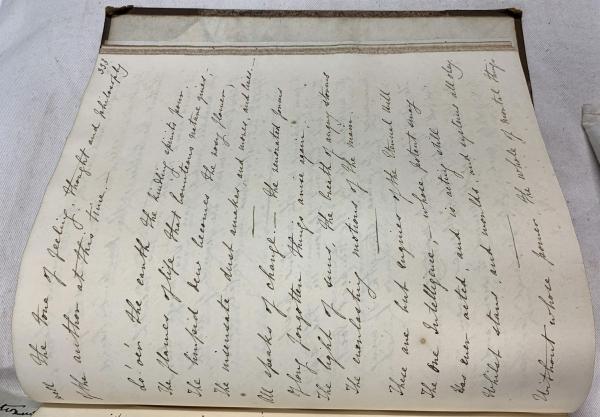 333
all the tone of feeling, thought and philosophy
of the author at this time.—
As o'er the earth the kindling spirits pour
The flames of life that bounteous nature gives;
The limpid dew becomes the rosy flower;
The insensate dust awakes, and moves, and lives.—
All speaks of change: the renovated forms
Of long forgotten things arise again;
The light of suns, the breath of angry storms
The everlasting motions of the main.
These are but engines of the Eternal will
The One Intelligence, whose potent sway
Has ever acted, and is acting still
Whilst stars, and worlds, and systems all obey
Without whose power, the whole of mortal things